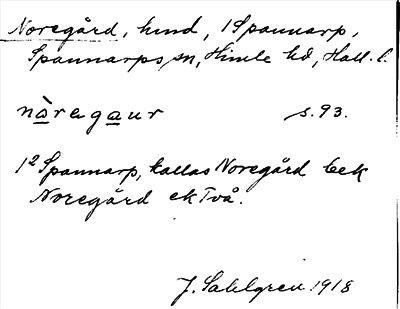 Noregård, hmd, 1 Spannarp,
Spannarps sn, Himle hd, Hall. l.
nòregaur s. 93.
1² Spannarp, kallas Noregård bek
Noregård ek Två.
J. Sahlgren 1918